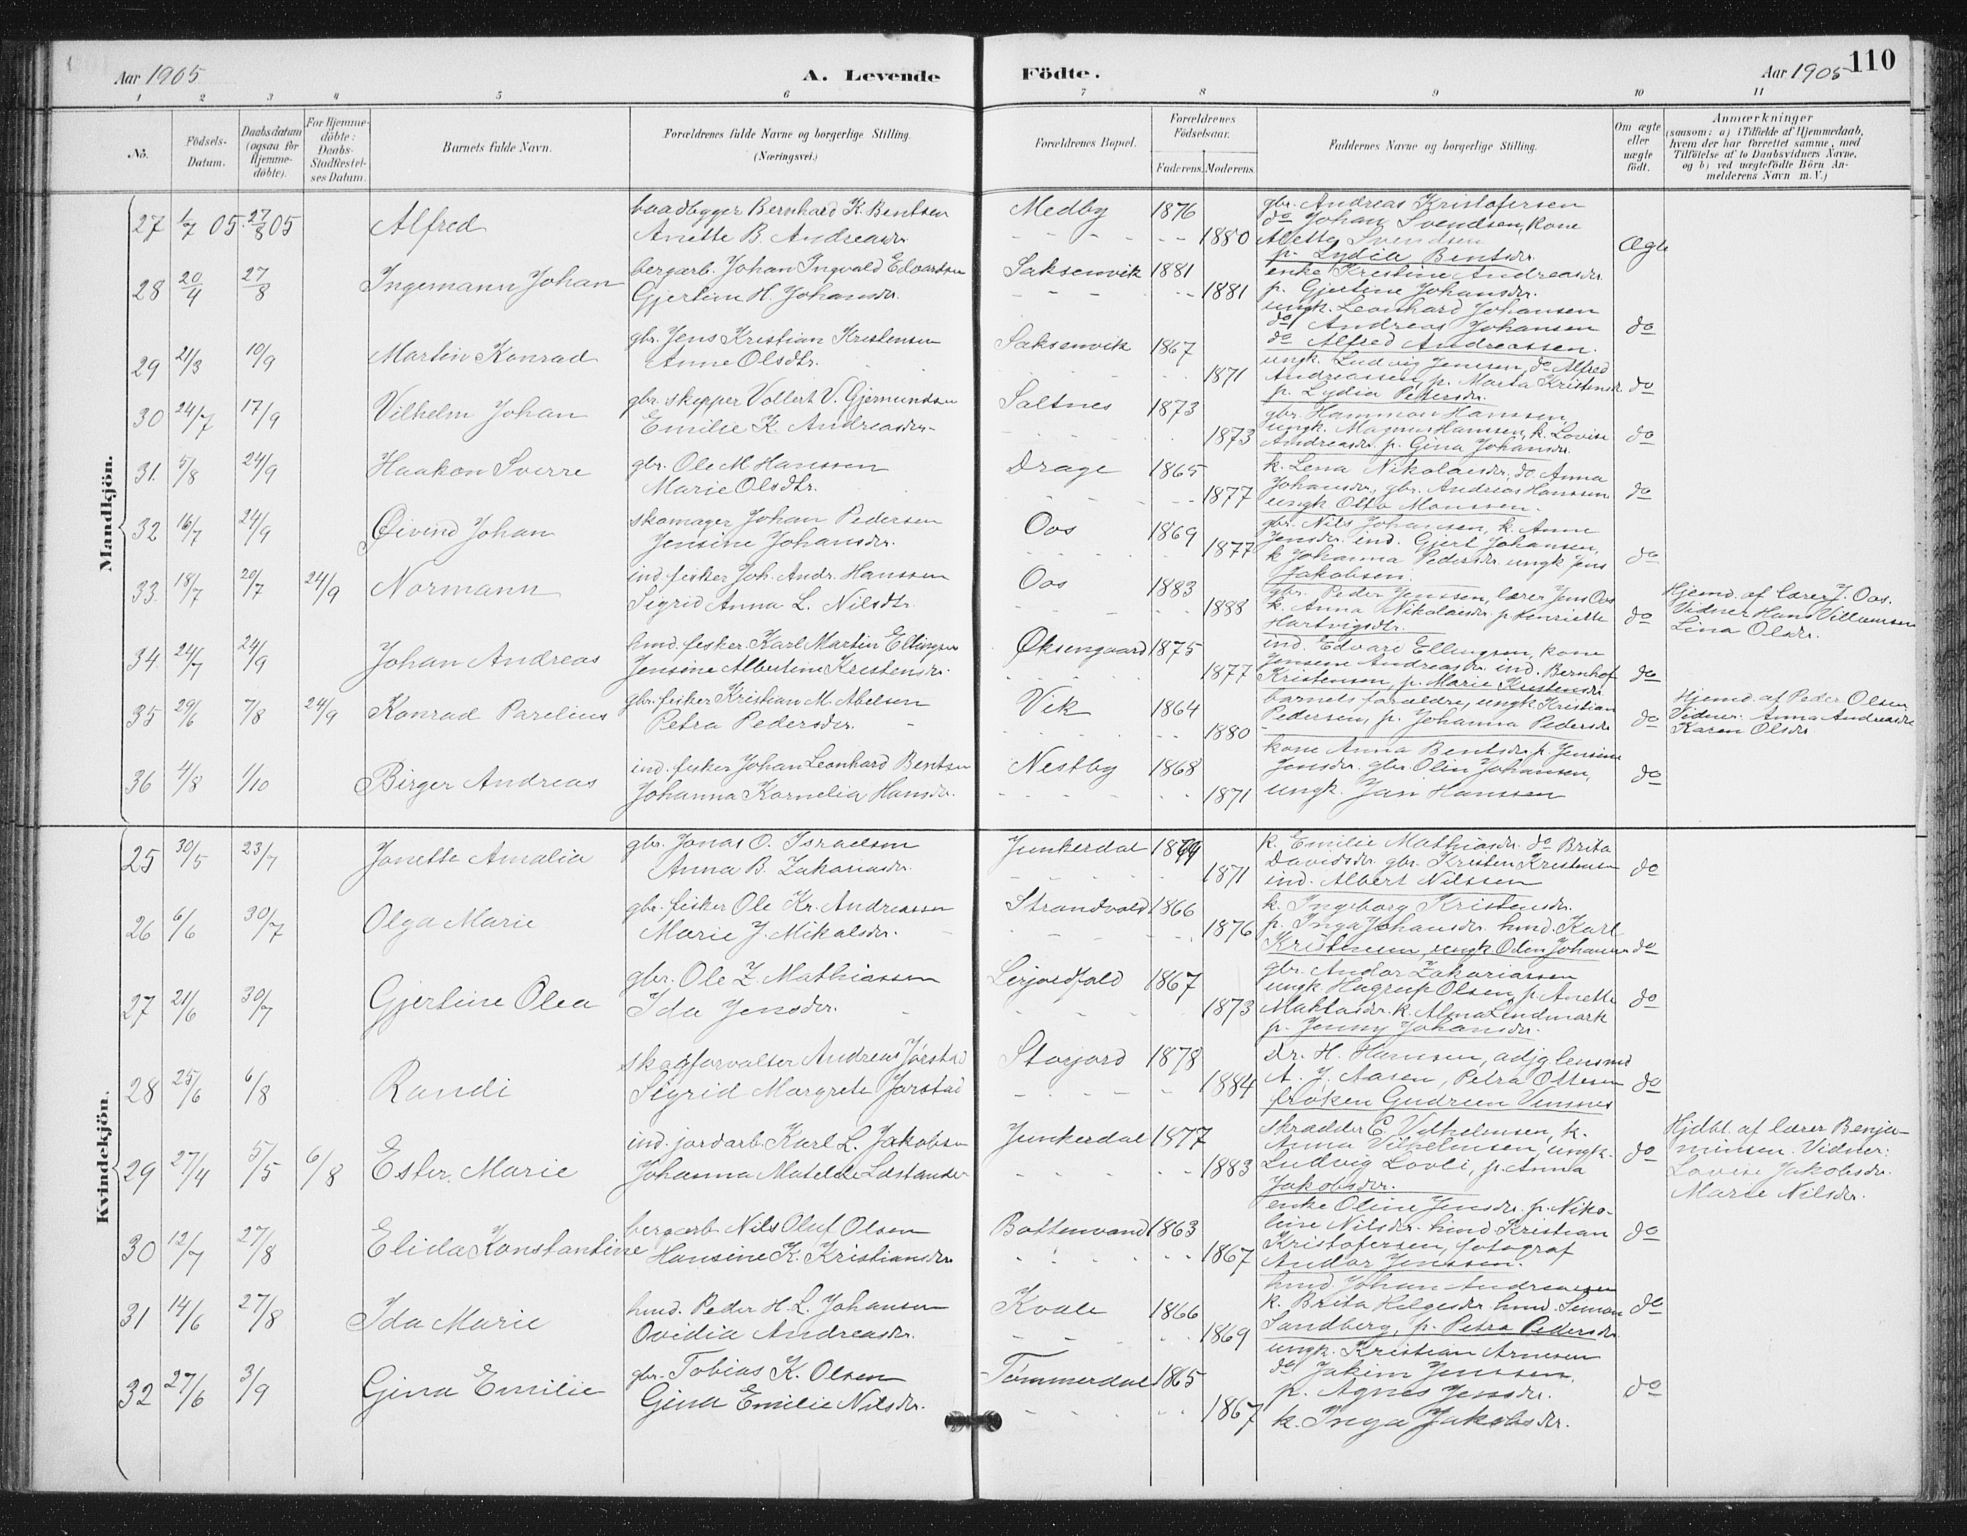 Aar 1905
A. Levende Födte.
Aar 1905
110
1 2 3 4 5 6 7 8 9 10 11
No.
Födsels-Datum.
Daabsdatum (ogsaa for Hjemme-döbte).
For Hjemme-döbte: Daabs-Stadfæstel-ses Datum.
Barnets fulde Navn.
Forældrenes fulde Navne og borgerlige Stilling. (Næringsvei.)
Forældrenes Bopæl.
Forældrenes Födselsaar.
Faderens. Moderens.
Faddernes Navne og borgerlige Stilling.
Om ægte eller uægte födt.
Anmærkninger
(saasom: a) i Tilfælde af Hjemmedaab, hvem der har forrettet samme, med Tilföielse af to Daabsvidners Navne, og b) ved uægtefödte Börn An-melderens Navn m. V.)
Mandkjön.
27 1/7 05. 27/8 05 Alfred
baadbygger Bernhard K. Bentsen
Anette B. Andreasdr.
Medby 1876
1880
gbr. Andreas Kristofersen
do Johan Svendsen, kone
Alette Svendsen
p. Lydia Bentsdr.
Ægte
28 20/4 27/8 Ingemann Johan
bergarb. Johan Ingvald Edvardsen
Gjertine H. Johansdr.
Saksenvik 1881
1881
enke Kristine Andreasdr.
p. Gjertine Johansdr.
ungk. Leonhard Johansen
do Andreas Johansen
do Alfred Andreassen.
do
29 21/3 10/9 Martin Konrad
gbr. Jens Kristian Kristensen
Anne Olsdtr.
Saksenvik 1867
1871
ungk. Ludvig Jensen, do Alfred
Andreassen, p. Marta Kristensdr
p. Lydia Petersdr.
do
30 24/7 17/9 Vilhelm Johan
gbr. skipper Vollert V. Gjemundsen
Emilie K. Andreasdr.
Saltnes 1873
1873
gbr. Hammon Hanssen,
ungk. Magnus Hanssen, k. Lovise
Andreasdr. p. Gina Johansdr.
do
31. 5/8 24/9 Haakon Sverre
gbr. Ole M Hanssen
Marie Olsdtr.
Drage 1865
1877
k. Lena Nikolaisdr, do Anna
Johansdr, gbr. Andreas Hanssen
ungk Otto Monssen.
do
32 16/7 24/9 Øivind Johan
skomager Johan Pedersen
Jensine Johansdr.
Oos 1869
1877
gbr. Nils Johansen, k. Anne
Jensdr. ind. Gjert Johansen,
k Johanna Pedersdr. ungk Jens
Jakobsen.
do
33. 18/7 20/7 24/9 Normann
ind. fisker Joh. Andr. Hanssen
Sigrid Anna L. Nilsdtr.
Oos 1883
1888
gbr. Peder Jenssen, lærer Jens Oos
k. Anna Nikolaisdr p. Henriette
Hartvigsdtr.
do
Hjemd. af lærer J. Oos.
Vidner Hans Villumsen
Lina Olsdr.
34. 24/7 24/9 Johan Andreas
hmd. fisker Karl Martin Ellingsen
Jensine Albertine Kristensdr.
Øksengaard 1875
1877
ind. Edvard Ellingsen, kone
Jensine Andreasdr. ind. Bernhof
Kristensen, p. Marie Kristensdr
do
35 29/6 7/8 24/9 Konrad Parelius
gbr. fisker Kristian M. Abelsen
Petra Pedersdr.
Vik 1864
1880
barnets forældre, ungk Kristian
Pedersen, p. Johanna Pedersdr
do
Hjemd. af Peder Olsen
Vidner: Anna Andreasdr
Karen Olsdr
36 4/8 1/10 Birger Andreas
ind. fisker Johan Leonhard Bentsen
Johanna Kornelia Hansdr.
Nestby 1868
1871
kone Anna Bentsdr. p. Jensine
Jensdr. gbr. Olin Johansen,
ungk. Jan Hanssen
do
Kvindekjön.
25 30/5 23/7 Jonette Amalia
gbr. Jonas O. Israelsen
Anna B. Zakariasdr.
Junkerdal
1871
k. Emilie Mathiasdr. do Brita
Davidsdr. gbr. Kristen Kristensen
ind. Albert Nilssen
do
26 6/6 30/7 Olga Marie
gbr. fisker Ole Kr. Andreassen
Marie J. Mikalsdr.
Strandvold 1866
1876
k. Ingeborg Kristensdr.
p. Inga Johansdr. hmd. Karl
Kristensen, ungk Oden Johansen
do
27 21/6 30/7 Gjertine Olea
gbr. Ole Z Mathiassen
Ida Jensdr.
Leijordfald 1867
1873
gbr. Andor Zakariassen
ungk Hagrup Olsen, p. Anette
k. Alma Lindmark
p. Jenny Johansdr.
do
28 25/6 6/8 Randi
skogforvalter Andreas Jørstad
Sigrid Margrete Jørstad
Storjord 1878
1884
dr. H. Hansen, adj. lensmd
A. J. Aasen, Petra Ottesen
frøken Gudrun Vinsnes
do
29 27/4 5/5 6/8 Ester Marie
ind. jordarb. Karl L. Jakobsen
Johanna Matilde Læstander
Junkerdal 1877
1883
skrædder C. Vilhelmsen, k.
Anna Vilhelmsen, ungk.
Ludvig Lovli, p. Anna
Jakobsdr.
do
Hjdbt. af lærer Benja-
minsen. Vidner:
Lovise Jakobsdr.
Marie Nilsdr.
30 12/7 27/8 Elida Konstantine
bergarb. Nils Oluf Olsen
Hansine K. Kristiansdr
Bottenvand 1863
1867
enke Oline Jensdr. p. Niko-
line Nilsdr. hmd Kristian
Kristofersen, fotograf
Andor Jenssen.
do
31 14/6 27/8 Ida Marie
hmd. Peder H. L. Johansen
Ovidia Andreasdr.
Kvale 1866
1869
hmd. Johan Andreassen
k. Brita Helgesdr. hmd. Simon
Sandberg, p. Petra Pedersdr
do
32 27/6 3/9 Gina Emilie
gbr. Tobias K. Olsen
Gina Emilie Nilsdr.
Tømmerdal 1865
1867
ungk. Kristian Arnesen
do Jakim Jenssen,
p. Agnes Jensdr.
k. Inga Jakobsdr.
do